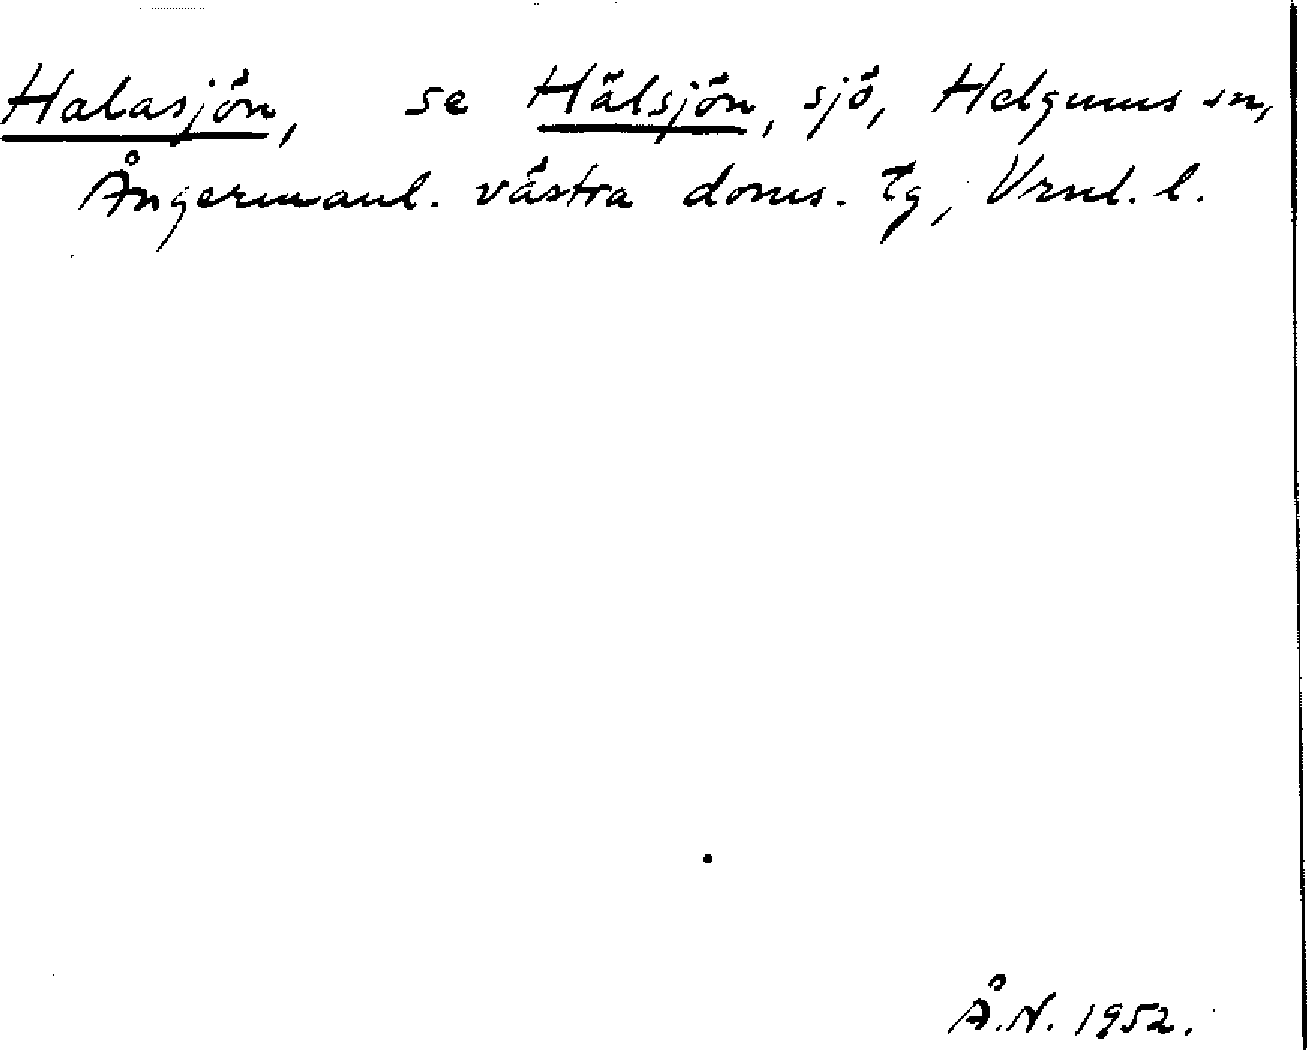 Halasjön, se Hälsjön, sjö, Helgums sn,
Ångermanl. västra doms. tg, Vrnl. l.
Å.N. 1952.